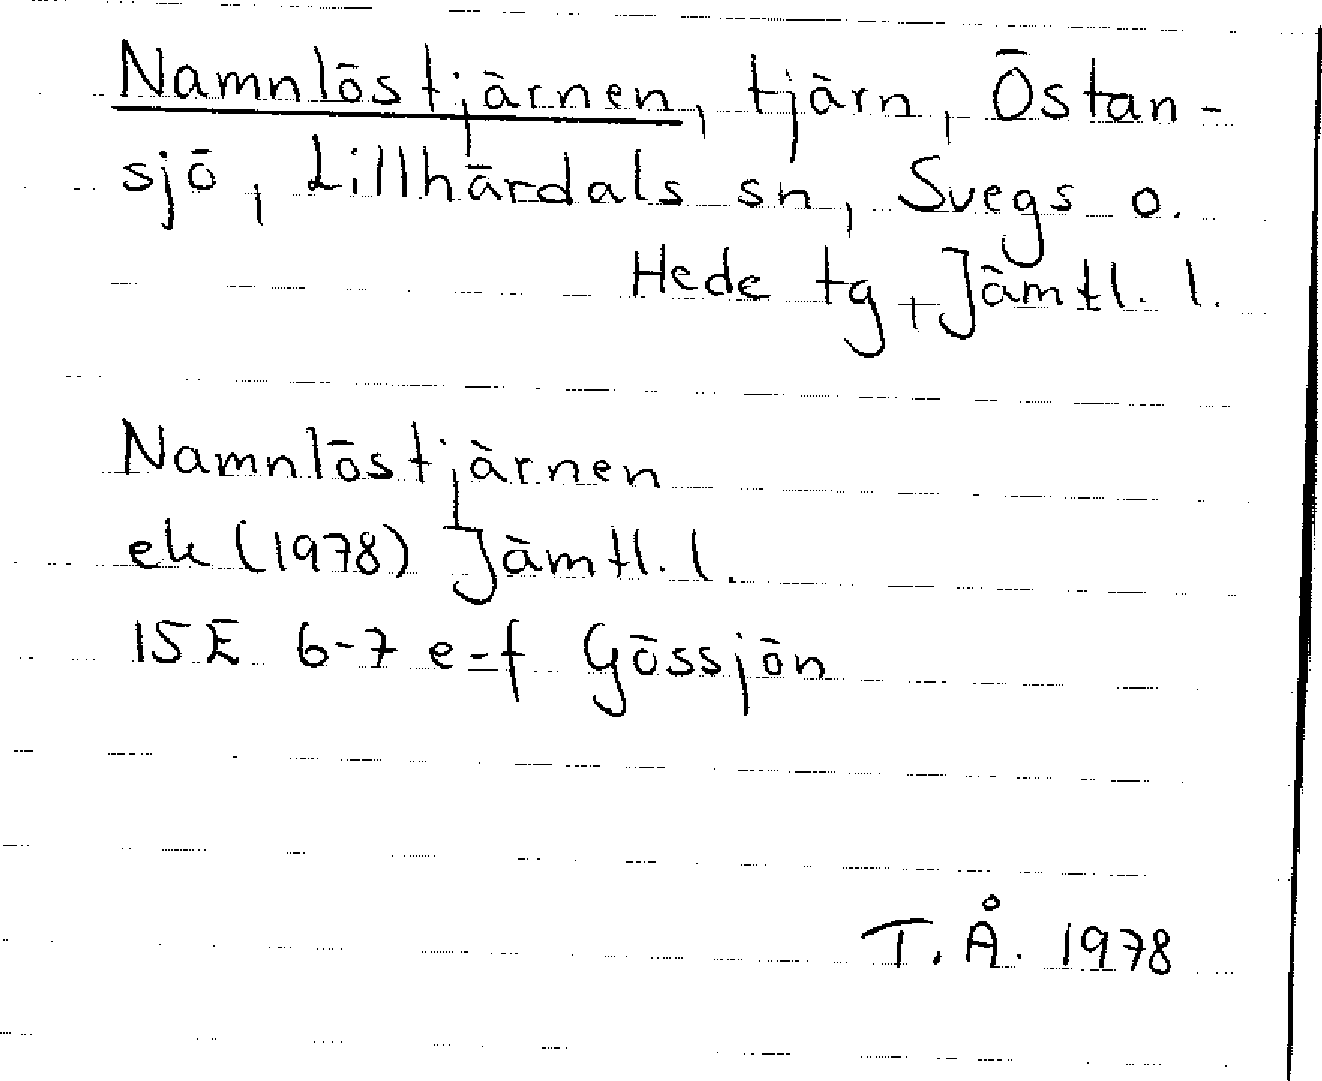 Namnlöstjärnen, tjärn, Östan-
sjö, Lillhärdals sn, Svegs o.
Hede tg, Jämtl. l.
Namnlöstjärnen
ek (1978) Jämtl. l.
15E 6-7 e-f Gössjön
T. Å. 1978